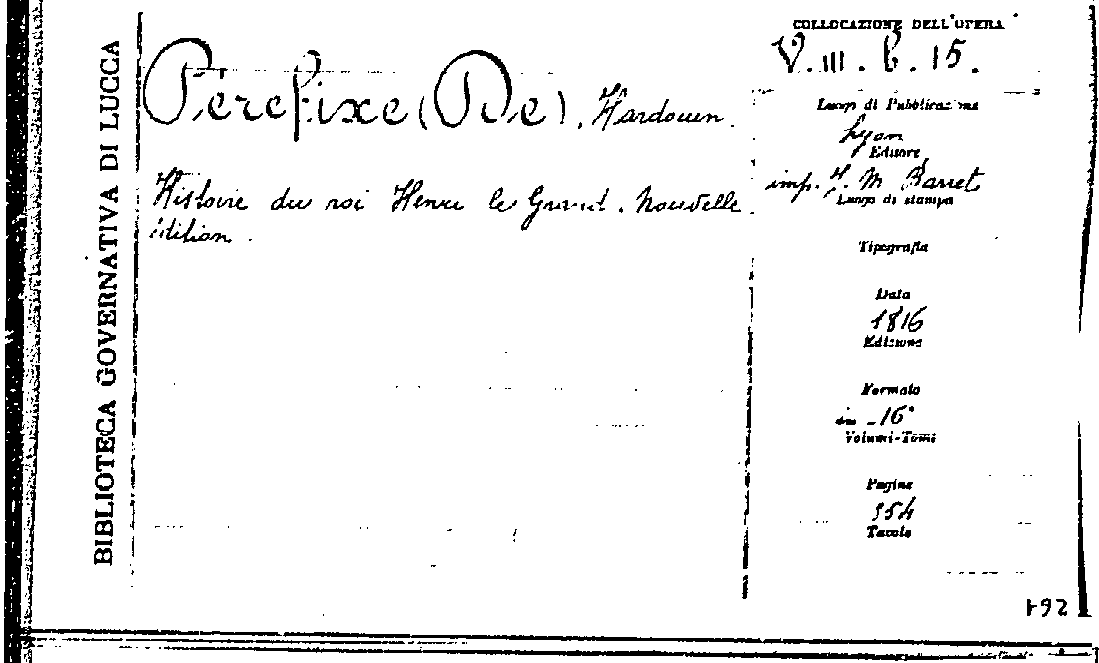 BIBLIOTECA GOVERNATIVA DI LUCCA
Pèrefixe (De). Hardouin.
Histoire du roi Henri le Grand. Nouvelle
édition.
COLLOCAZIONE DELL'OPERA
V. III. b. 15.
Luogo di Pubblicazione
Lyon
Editore
imp. J. M. Barret
Luogo di stampa
Tipografia
Data
1816
Edizione
Formato
in-16°
Volumi-Tomi
Pagine
354
Tavole